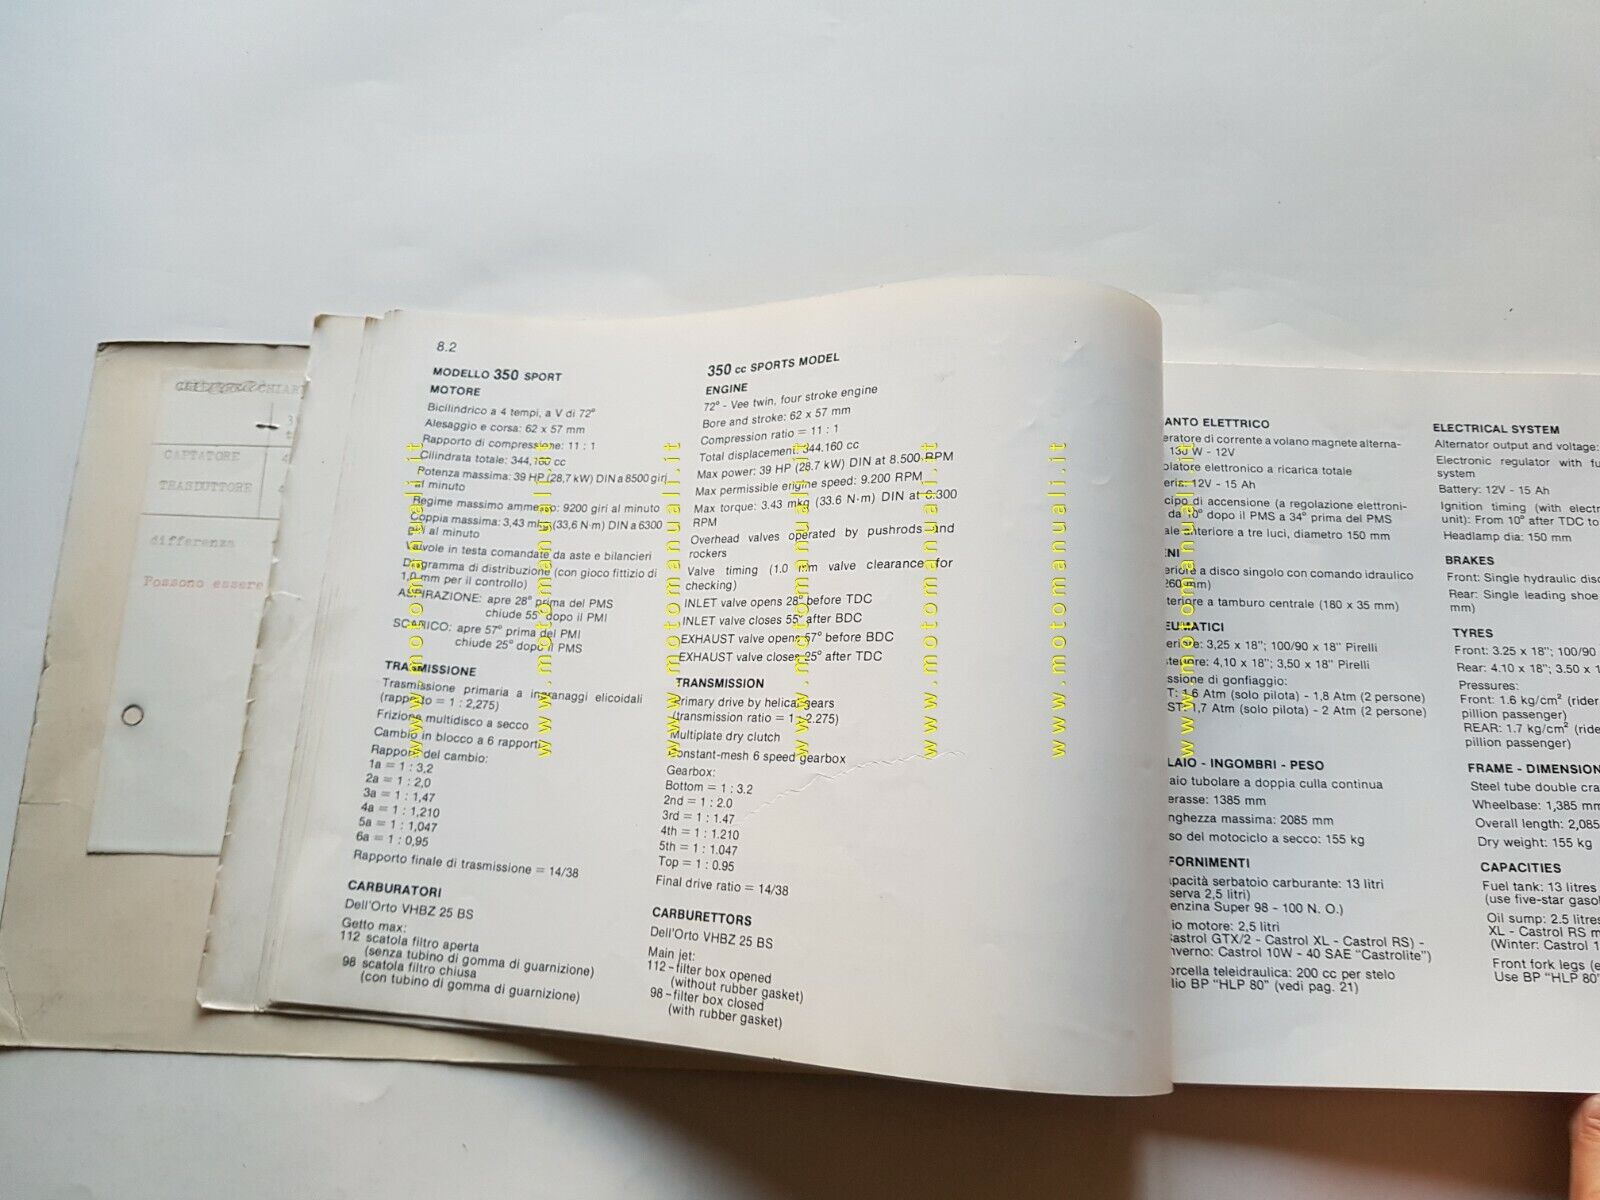 CHIAR
CAPTATORE
TRASDUTTORE
differenza
Possono essere
8.2
MODELLO 350 SPORT
MOTORE
Bicilindrico a 4 tempi, a V di 72°
Alesaggio e corsa: 62 x 57 mm
Rapporto di compressione: 11 : 1
Cilindrata totale: 344,160 cc
Potenza massima: 39 HP (28,7 kW) DIN a 8500 giri
al minuto
Regime massimo ammesso: 9200 giri al minuto
Coppia massima: 3,43 mkg (33,6 N·m) DIN a 6300
giri al minuto
Valvole in testa comandate da aste e bilancieri
Diagramma di distribuzione (con gioco fittizio di
1,0 mm per il controllo)
ASPIRAZIONE: apre 28° prima del PMS
chiude 55° dopo il PMI
SCARICO: apre 57° prima del PMI
chiude 25° dopo il PMS
TRASMISSIONE
Trasmissione primaria a ingranaggi elicoidali
(rapporto = 1 : 2,275)
Frizione multidisco a secco
Cambio in blocco a 6 rapporti
Rapporti del cambio:
1a = 1 : 3,2
2a = 1 : 2,0
3a = 1 : 1,47
4a = 1 : 1,210
5a = 1 : 1,047
6a = 1 : 0,95
Rapporto finale di trasmissione = 14/38
CARBURATORI
Dell'Orto VHBZ 25 BS
Getto max:
112 scatola filtro aperta
(senza tubino di gomma di guarnizione)
98 scatola filtro chiusa
(con tubino di gomma di guarnizione)
350 cc SPORTS MODEL
ENGINE
72° - Vee twin, four stroke engine
Bore and stroke: 62 x 57 mm
Compression ratio = 11 : 1
Total displacement: 344.160 cc
Max power: 39 HP (28.7 kW) DIN at 8.500 RPM
Max permissible engine speed: 9.200 RPM
Max torque: 3.43 mkg (33.6 N·m) DIN at 6.300
RPM
Overhead valves operated by pushrods and
rockers
Valve timing (1.0 mm valve clearance for
checking)
INLET valve opens 28° before TDC
INLET valve closes 55° after BDC
EXHAUST valve opens 57° before BDC
EXHAUST valve closes 25° after TDC
TRANSMISSION
Primary drive by helical gears
(transmission ratio = 1 : 2.275)
Multiplate dry clutch
Constant-mesh 6 speed gearbox
Gearbox:
Bottom = 1 : 3.2
2nd = 1 : 2.0
3rd = 1 : 1.47
4th = 1 : 1.210
5th = 1 : 1.047
Top = 1 : 0.95
Final drive ratio = 14/38
CARBURETTORS
Dell'Orto VHBZ 25 BS
Main jet:
112 - filter box opened
(without rubber gasket)
98 - filter box closed
(with rubber gasket)
ANTO ELETTRICO
eratore di corrente a volano magnete alterna-
130 W - 12V
olatore elettronico a ricarica totale
eria: 12V - 15 Ah
cipo di accensione (a regolazione elettroni-
da 10° dopo il PMS a 34° prima del PMS
ale anteriore a tre luci, diametro 150 mm
ENI
eriore a disco singolo con comando idraulico
260 mm)
teriore a tamburo centrale (180 x 35 mm)
EUMATICI
eriore: 3,25 x 18"; 100/90 x 18" Pirelli
steriore: 4,10 x 18"; 3,50 x 18" Pirelli
ssione di gonfiaggio:
T: 1,6 Atm (solo pilota) - 1,8 Atm (2 persone)
ST: 1,7 Atm (solo pilota) - 2 Atm (2 persone)
LAIO - INGOMBRI - PESO
aio tubolare a doppia culla continua
erasse: 1385 mm
nghezza massima: 2085 mm
so del motociclo a secco: 155 kg
FORNIMENTI
apacità serbatoio carburante: 13 litri
serva 2,5 litri)
enzina Super 98 - 100 N. O.)
io motore: 2,5 litri
astrol GTX/2 - Castrol XL - Castrol RS) -
nverno: Castrol 10W - 40 SAE "Castrolite")
orcella teleidraulica: 200 cc per stelo
lio BP "HLP 80" (vedi pag. 21)
ELECTRICAL SYSTEM
Alternator output and voltage:
Electronic regulator with fu
system
Battery: 12V - 15 Ah
Ignition timing (with electr
unit): From 10° after TDC to
Headlamp dia: 150 mm
BRAKES
Front: Single hydraulic disc
Rear: Single leading shoe
mm)
TYRES
Front: 3.25 x 18"; 100/90
Rear: 4.10 x 18"; 3.50 x 1
Pressures:
Front: 1.6 kg/cm² (rider
pillion passenger)
REAR: 1.7 kg/cm² (ride
pillion passenger)
FRAME - DIMENSION
Steel tube double cra
Wheelbase: 1,385 mm
Overall length: 2,085
Dry weight: 155 kg
CAPACITIES
Fuel tank: 13 litres
(use five-star gasol
Oil sump: 2.5 litres
XL - Castrol RS m
(Winter: Castrol 1
Front fork legs (e
Use BP "HLP 80"
www.motomanuali.it
www.motomanuali.it
www.motomanuali.it
www.motomanuali.it
www.motomanuali.it
www.motomanuali.it
www.motomanuali.it